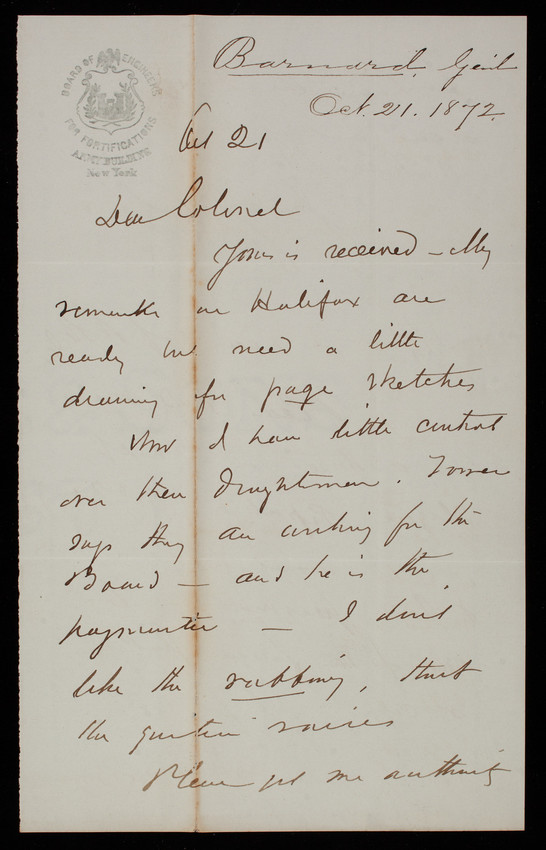 BOARD OF ENGINEERS
FOR FORTIFICATIONS
ARMY BUILDING
New York
Barnard, Genl
Oct. 21. 1872.
Oct 21
Dear Colonel
Yours is received – My
remarks on Halifax are
ready but need a little
drawing for page sketches
Now I have little control
over these draughtsmen. Tower
says they are working for the
Board – and he is the
paymaster – I don't
like the rubbing, that
the question raises
Please get me authority